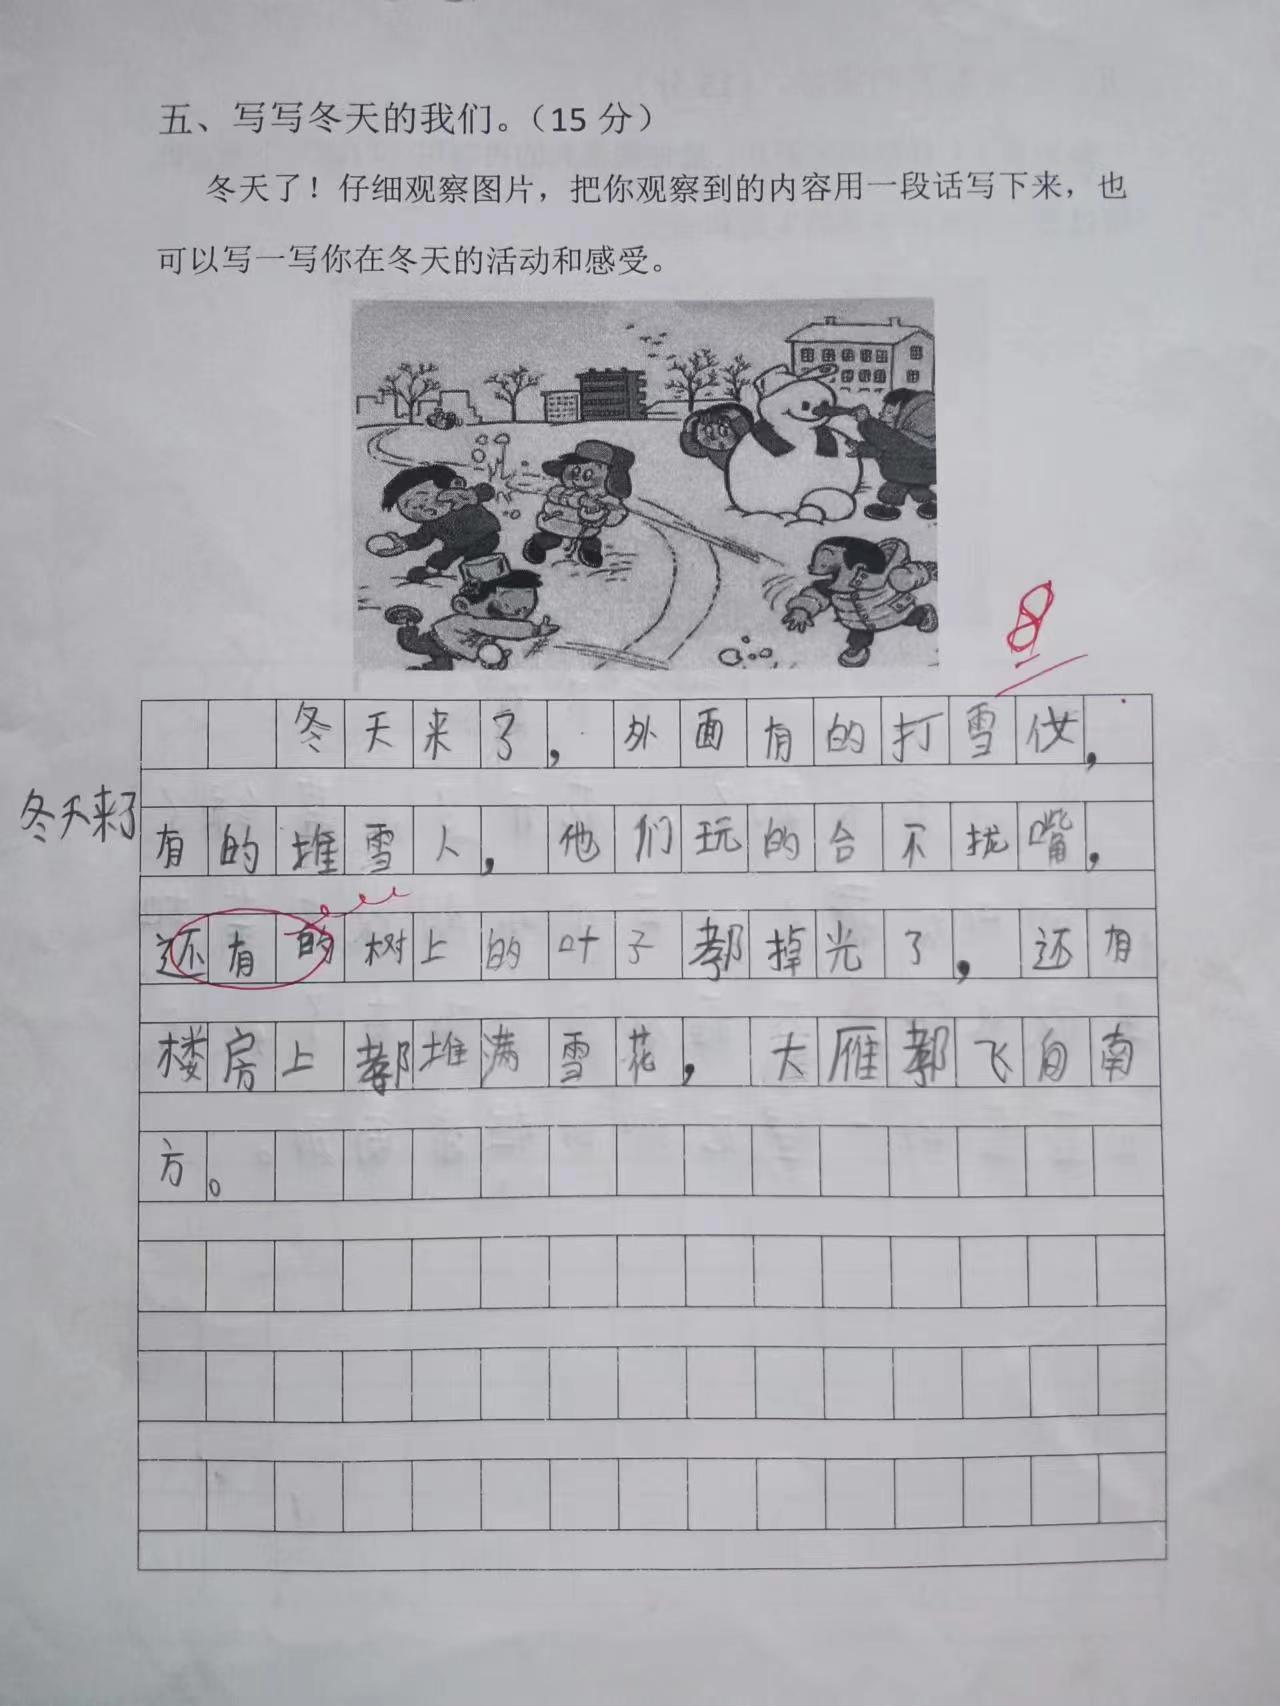 五、写写冬天的我们。（15 分）
冬天了！仔细观察图片，把你观察到的内容用一段话写下来，也
可以写一写你在冬天的活动和感受。
8
冬天来了，外面有的打雪仗，
冬天来了
有的堆雪人，他们玩的合不拢嘴，
还有的树上的叶子都掉光了，还有
楼房上都堆满雪花，大雁都飞向南
方。